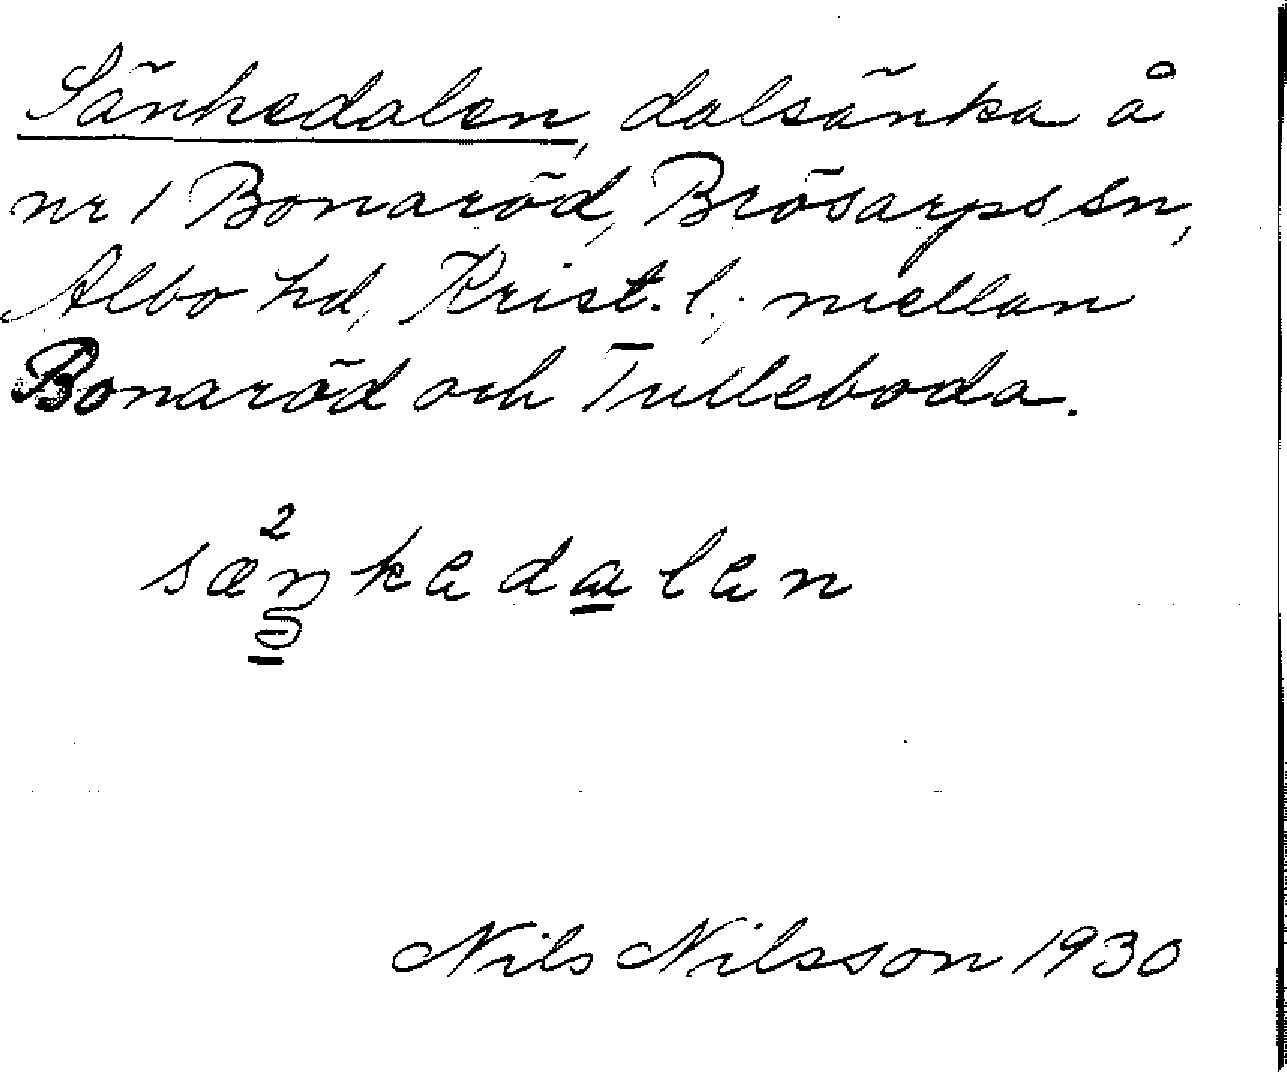 Sänkedalen, dalsänka å
nr 1 Bonaröd, Brösarps sn,
Albo hd, Krist. l.; mellan
Bonaröd och Tulleboda.
Nils Nilsson 1930